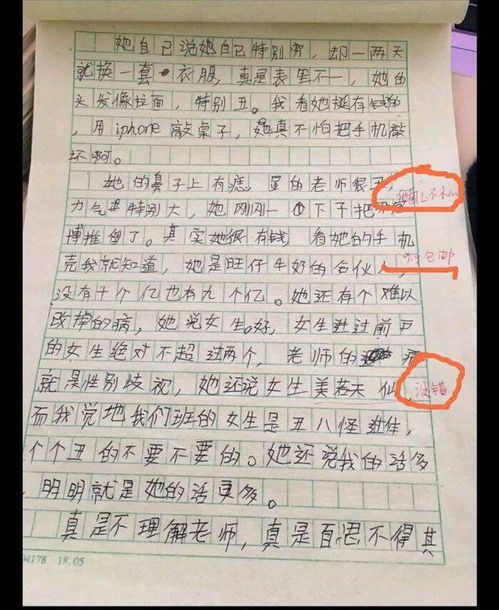 她自己说她自己特别穷，却一两天
就换一套衣服，真是表里不一，她的
头发像拉面，特别丑。我看她挺有钱的
，用iphone敲桌子，她真不怕把手机敲
坏啊。
她的鼻子上有痣，显的老师很丑，
力气特别大，她刚刚一下子把
博推倒了。其实她很有钱 看她的手机
壳我就知道，她是旺仔牛奶的合伙人，
9.9包邮
没有十个亿也有九个亿。她还有个难以
改掉的病，她说女生好，女生进过前
的女生绝对不超过两个，老师的 病
就是性别歧视，她还说女生美若天仙，
没错
而我觉地我们班的女生是丑八怪进体，
个个丑的不要不要的。她还说我的话多
，明明就是她的话更多。
真是不理解老师，真是百思不得其
04178 18.05